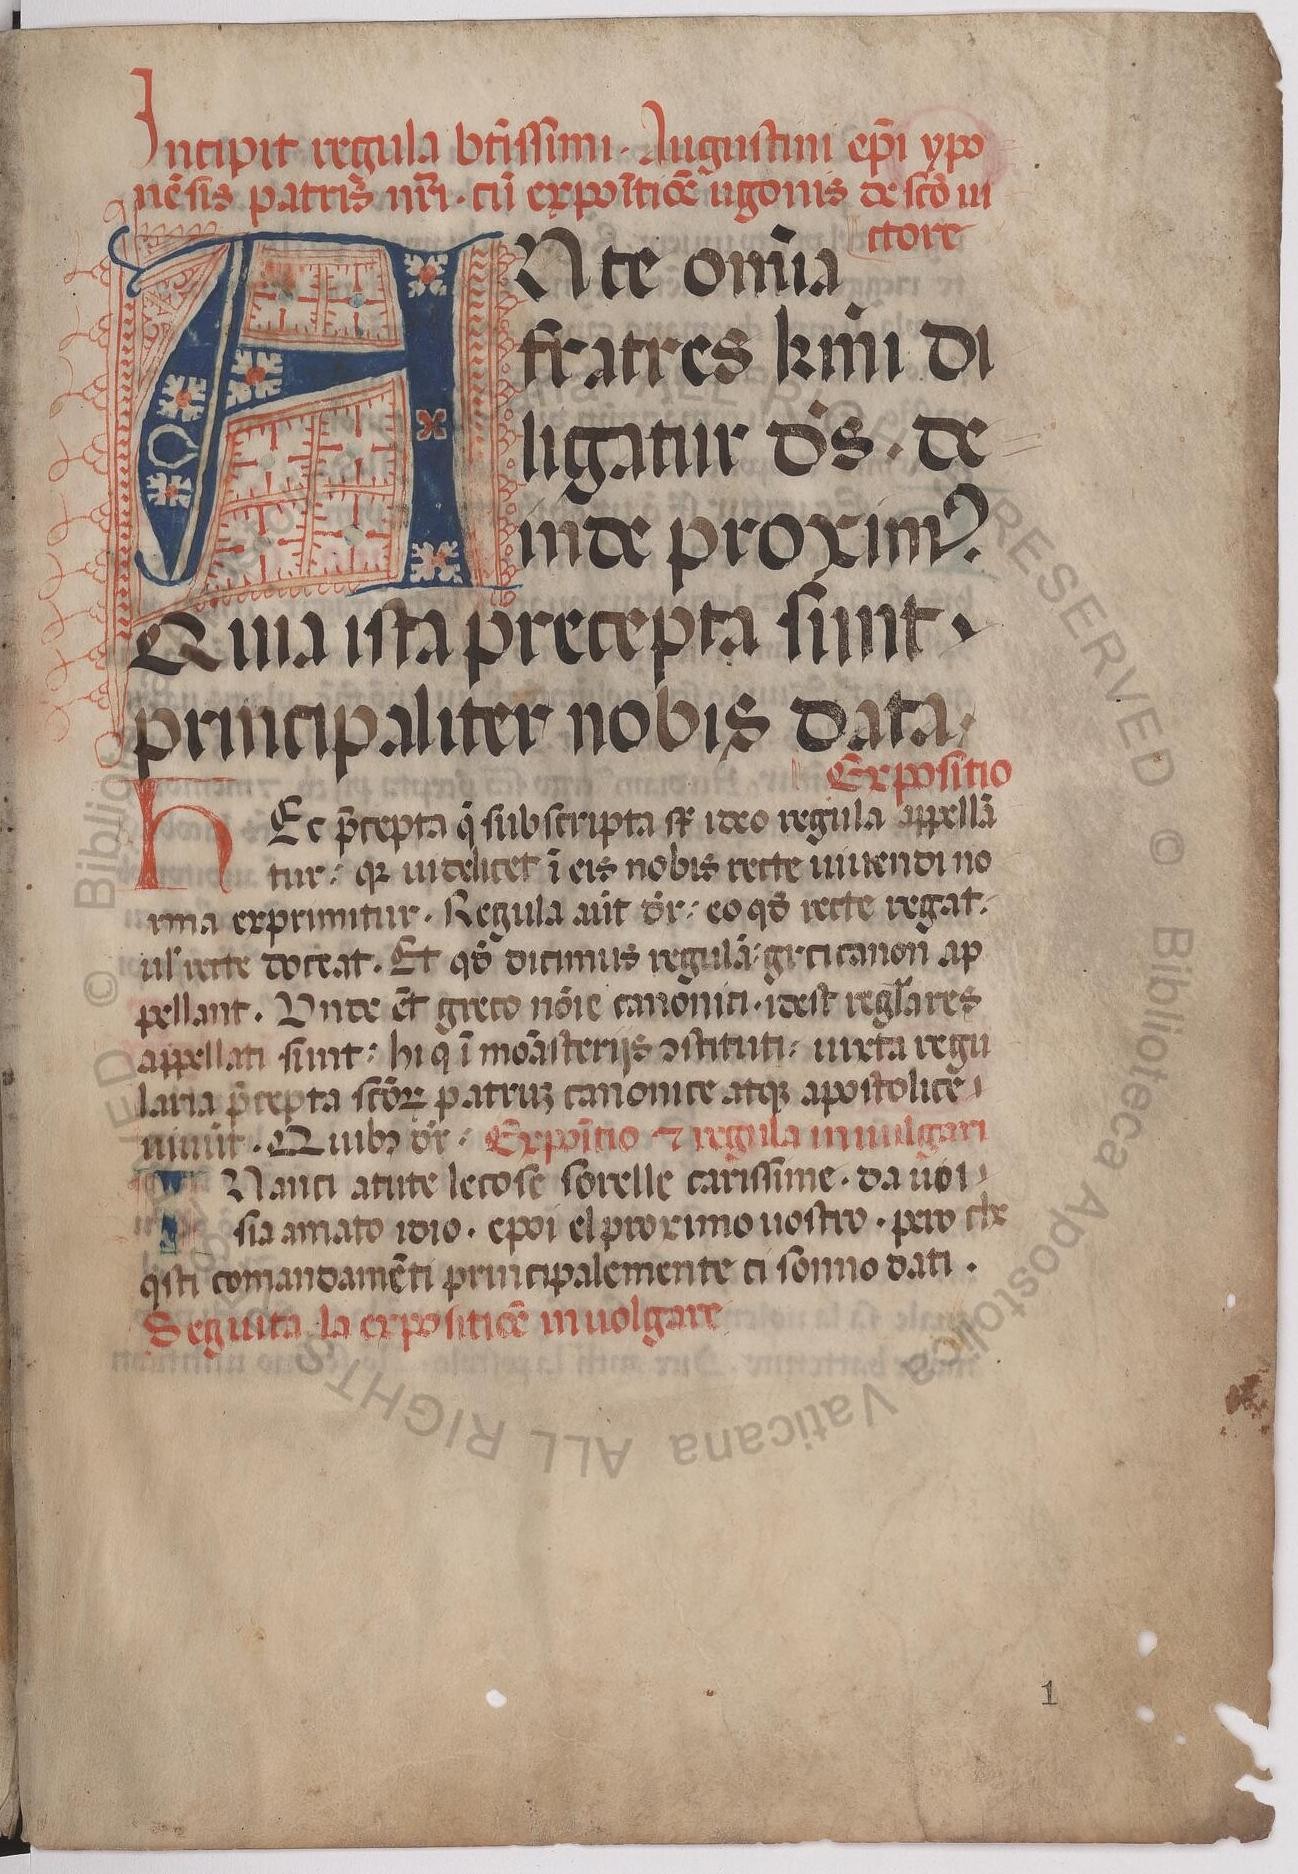 Incipit regula bt̄issimi · Augustini ep̄i ypo
nēsis patris̄ nr̄i · cū expoītiōē ugonis de scō ui
ctore
ANte om̄ia
fratres kmī di
ligatur d̄s · de
inde proximꝰ.
Quia ista precepta sunt ·
principaliter nobis data ·
Expositio
hEc p̄cepta q̄ subscripta st̄ ideo regula appellā
tur : qꝛ uidelicet ī eis nobis recte uiuendi no
rma exprimitur · Regula aūt dr̄ : eo qd̄ recte regat :
ul̓ recte doceat · Et qd̄ dicimus regulā : greci canon̄ ap
pellant · Vnde et̄ greco nōīe canōnici · idest regl̄ares
appellati sunt : hi q ī moāsterijs ꝯstituti : iuxta regu
laria p̄cepta scōꝝ patruꝫ canonice atqꝫ apostolice
uiuūt · Quibꝰ dr̄ : Expoītio ⁊ regula in uulgari
INanci atute lecose sorelle carissime · da uoi
sia amato idio · epoi el proximo uostro · pero che
qsti comandamēti principalemente ci sonno dati ·
Seguita la expositiōē in uolgare
1
© Biblioteca Apostolica Vaticana ALL RIGHTS RESERVED